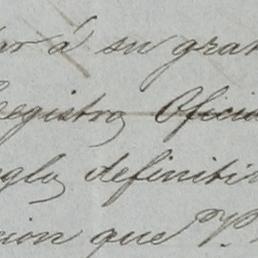 ar á su gran
Registro Oficia
glo definiti
cion que V.